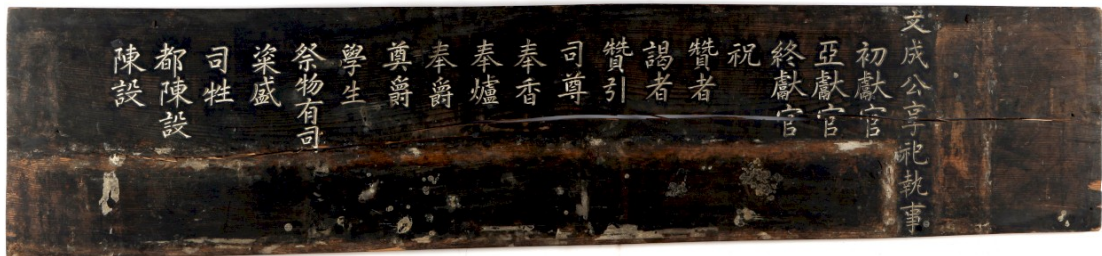 文成公享祀執事
初獻官
亞獻官
終獻官
祝
贊者
謁者
贊引
司尊
奉香
奉爐
奉爵
奠爵
學生
祭物有司
粢盛
司牲
都陳設
陳設